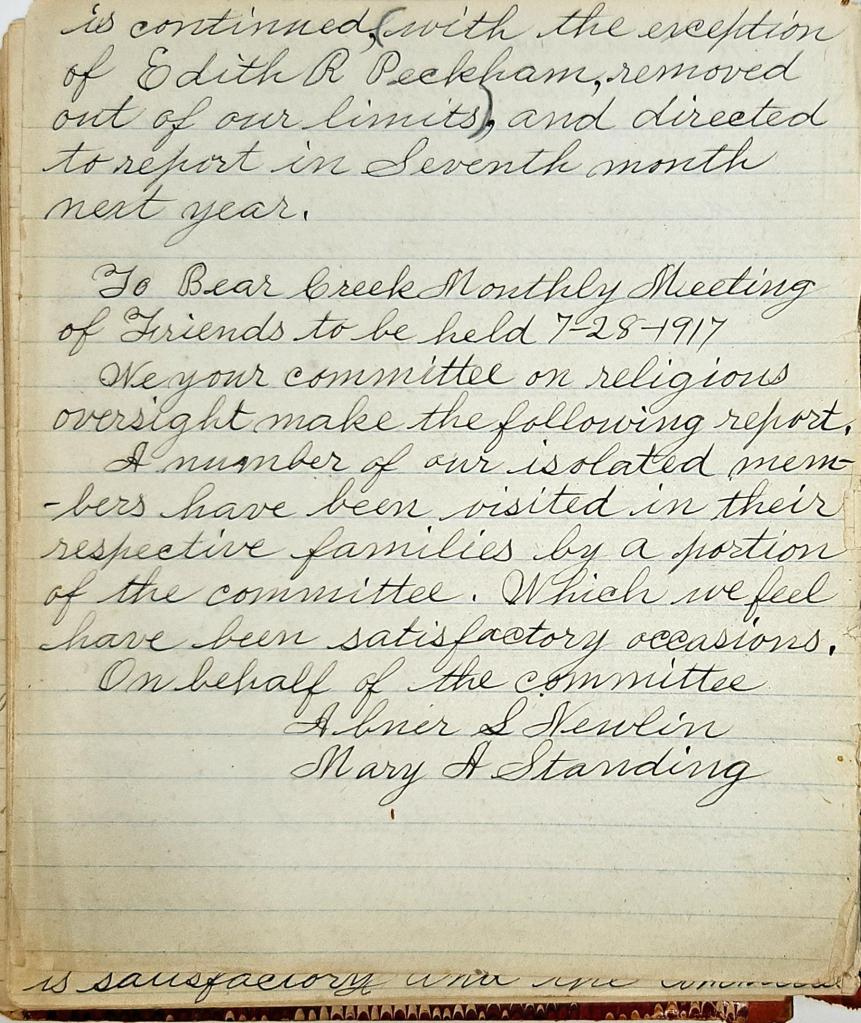 is continued, (with the exception
of Edith R Peckham, removed
out of our limits), and directed
to report in Seventh month
next year.
To Bear Creek Monthly Meeting
of Friends to be held 7-28-1917
We your committee on religious
oversight make the following report.
A number of our isolated mem-
-bers have been visited in their
respective families by a portion
of the committee. Which we feel
have been satisfactory occasions.
On behalf of the committee
Abner S Newlin
Mary A Standing
is satisfactory and the